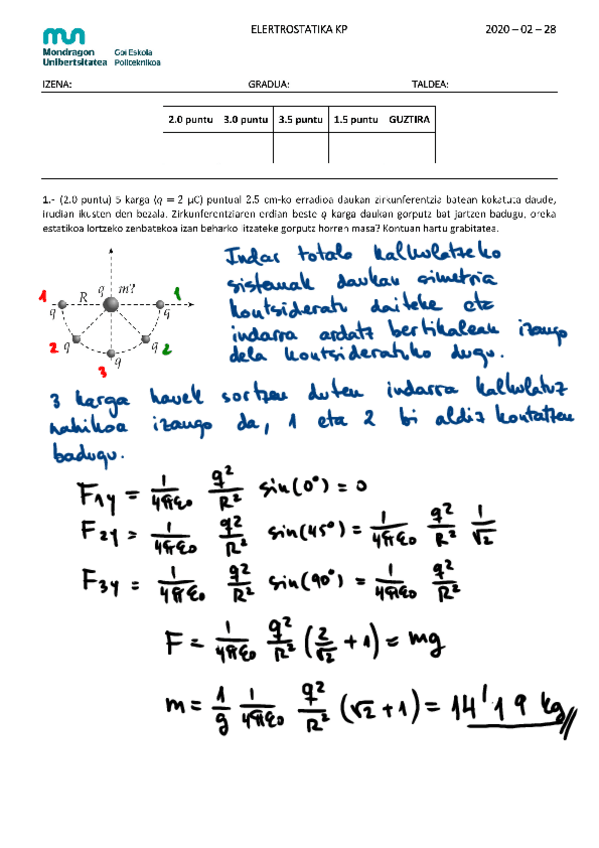 ELERTROSTATIKA KP 2020 – 02 – 28
Mondragon Unibertsitatea
Goi Eskola Politeknikoa
IZENA: GRADUA: TALDEA:
2.0 puntu 3.0 puntu 3.5 puntu 1.5 puntu GUZTIRA
1.- (2.0 puntu) 5 karga (q = 2 μC) puntual 2.5 cm-ko erradioa daukan zirkunferentzia batean kokatuta daude,
irudian ikusten den bezala. Zirkunferentziaren erdian beste q karga daukan gorputz bat jartzen badugu, oreka
estatikoa lortzeko zenbatekoa izan beharko litzateke gorputz horren masa? Kontuan hartu grabitatea.
q m?
1 R 1
q q
2 q q 2
q
3
Indar totala kalkulatzeko
sistemak daukan simetria
kontsideratu daiteke eta
indarra ardatz bertikalean izango
dela kontsideratuko dugu.
3 karga hauek sortzen duten indarra kalkulatuz
nahikoa izango da, 1 eta 2 bi aldiz kontatzen
badugu.
F1y = 1/4πε0 q²/R² sin(0°) = 0
F2y = 1/4πε0 q²/R² sin(45°) = 1/4πε0 q²/R² 1/√2
F3y = 1/4πε0 q²/R² sin(90°) = 1/4πε0 q²/R²
F = 1/4πε0 q²/R² (2/√2 + 1) = mg
m = 1/g 1/4πε0 q²/R² (√2 + 1) = 14'19 kg